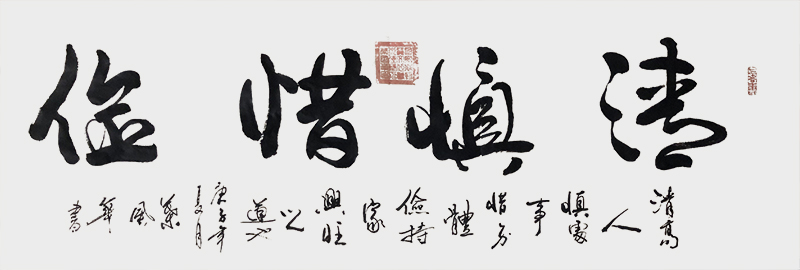 清慎惜儉
清高
人
慎處
事
惜分
體
儉持
家
興旺
之
道也
庚子年
夏月
風
書